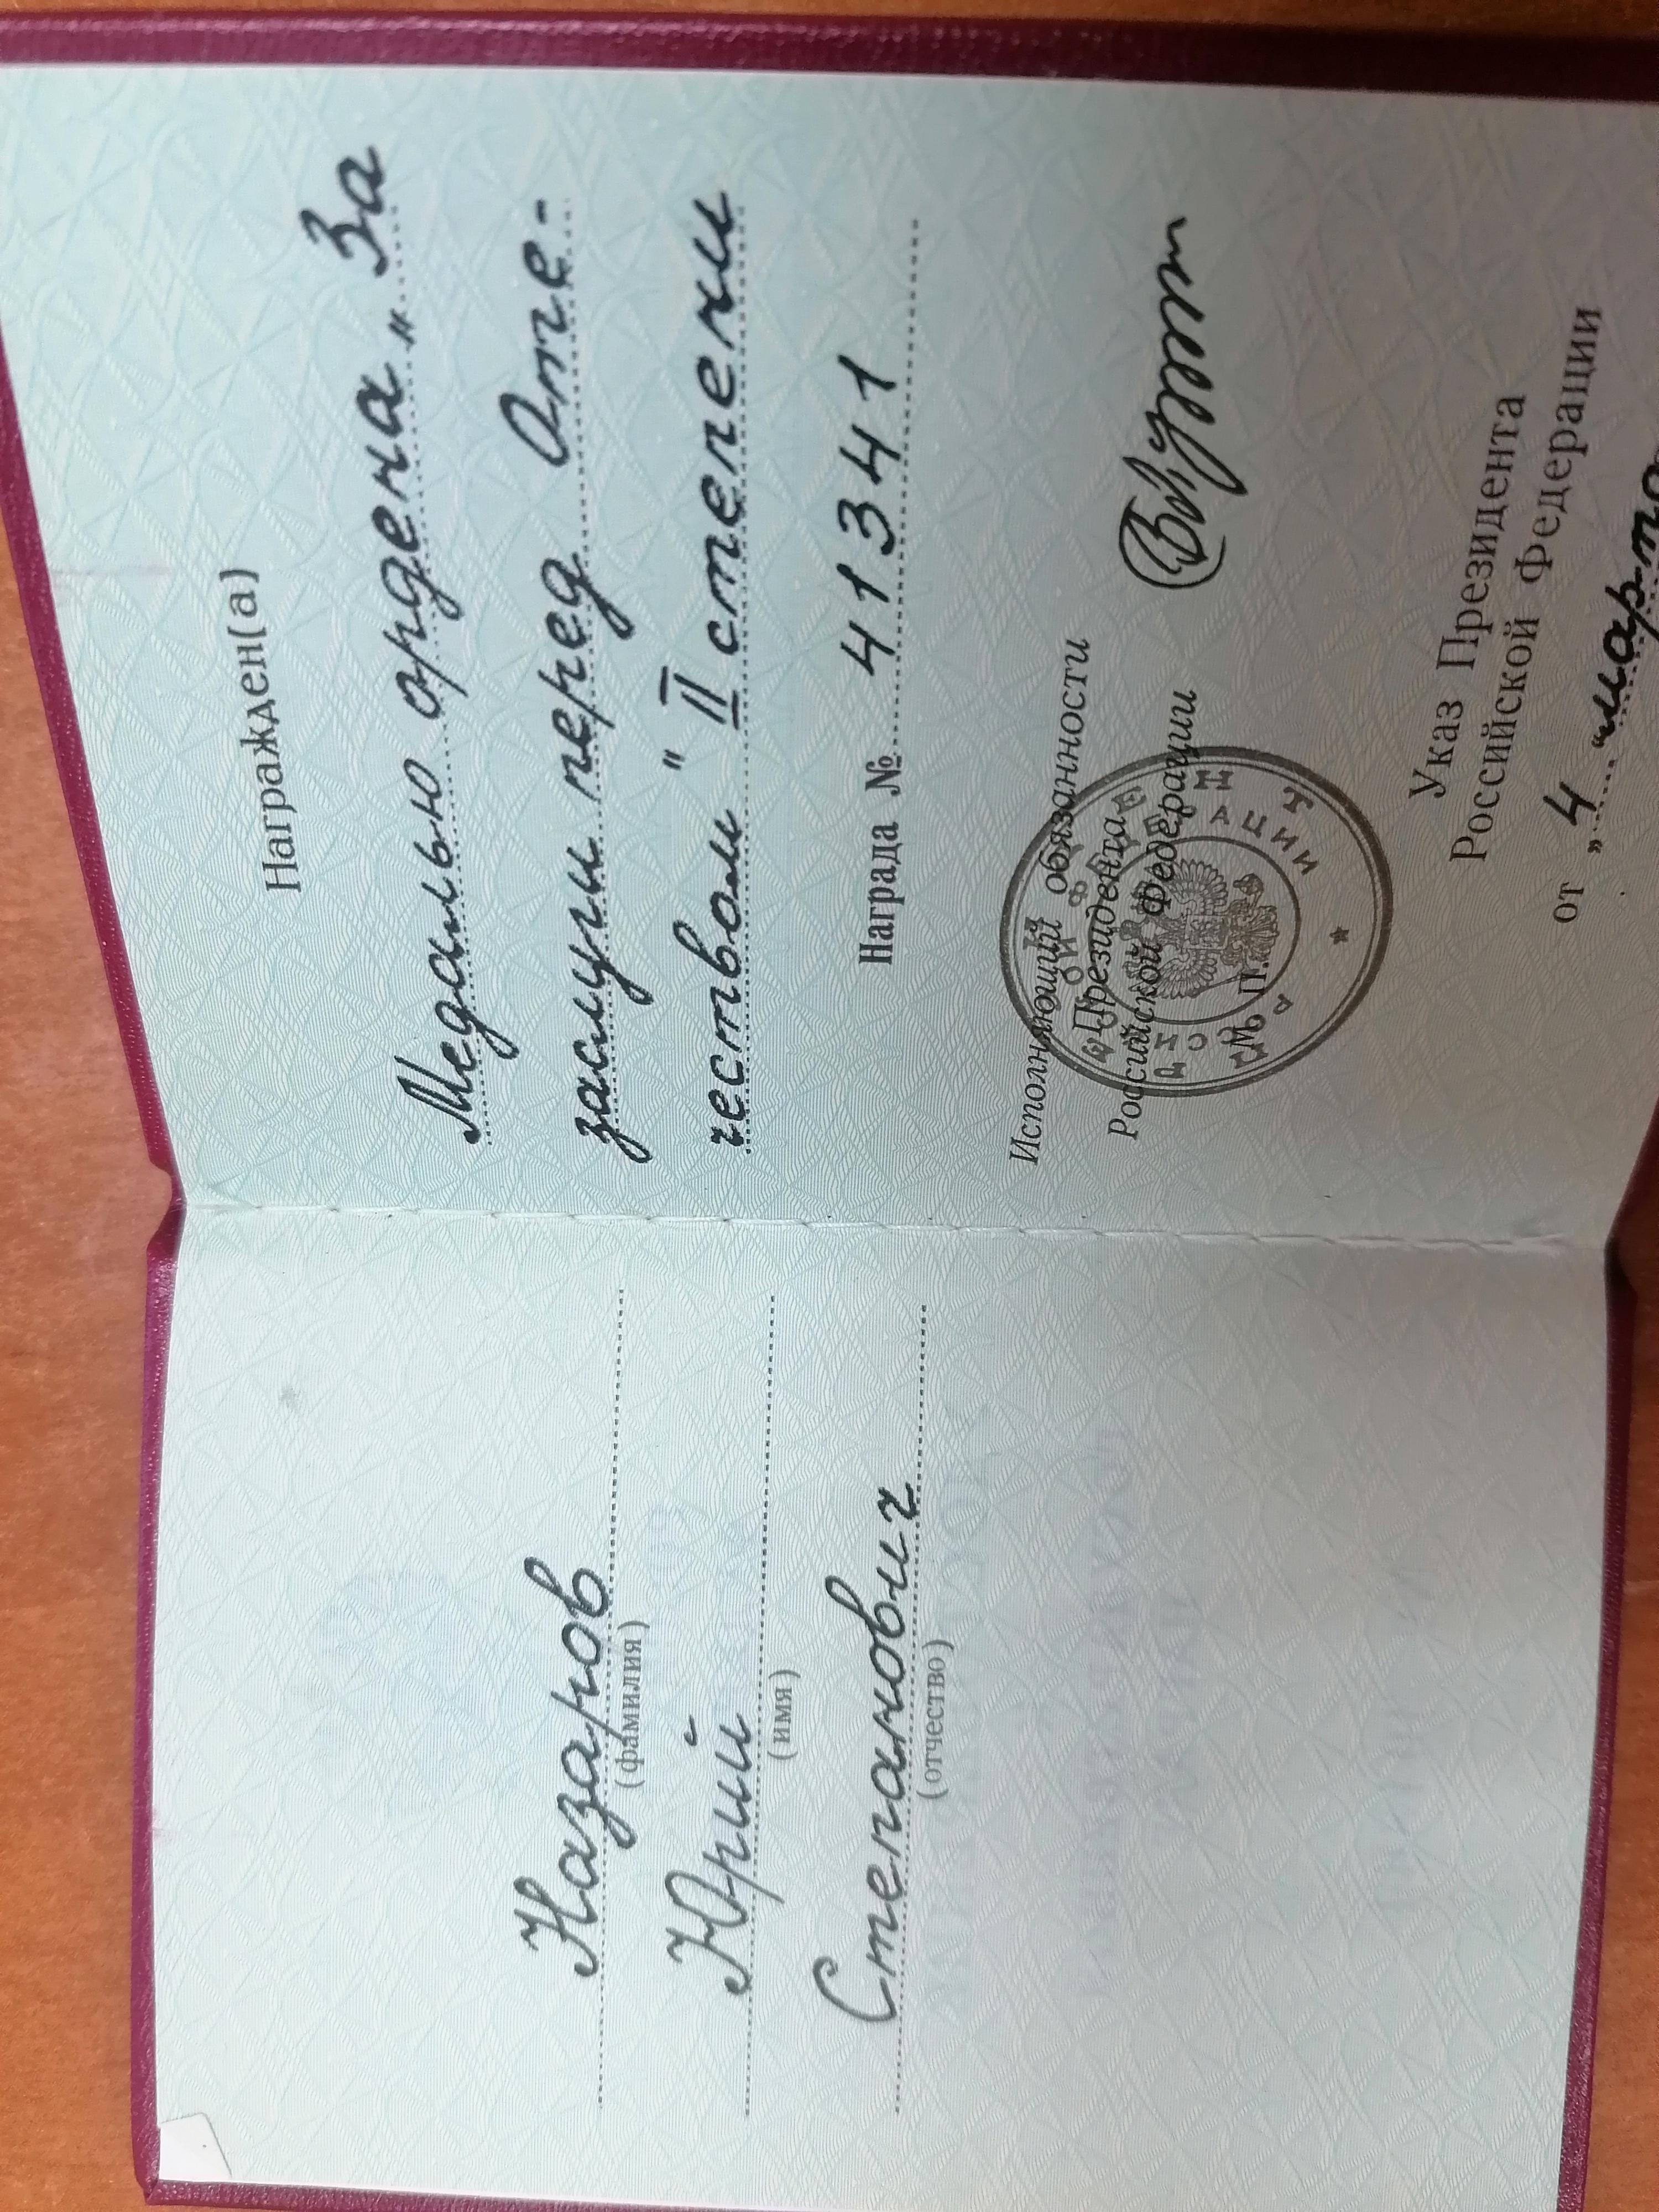 Назаров
(фамилия)
Юрий
(имя)
Степанович
(отчество)
Награжден(а)
Медалью ордена „За
заслуги перед Оте-
чеством" II степени
Награда № 41341
Исполняющий обязанности
Президента
Российской Федерации
М. П.
Указ Президента
Российской Федерации
от „4"